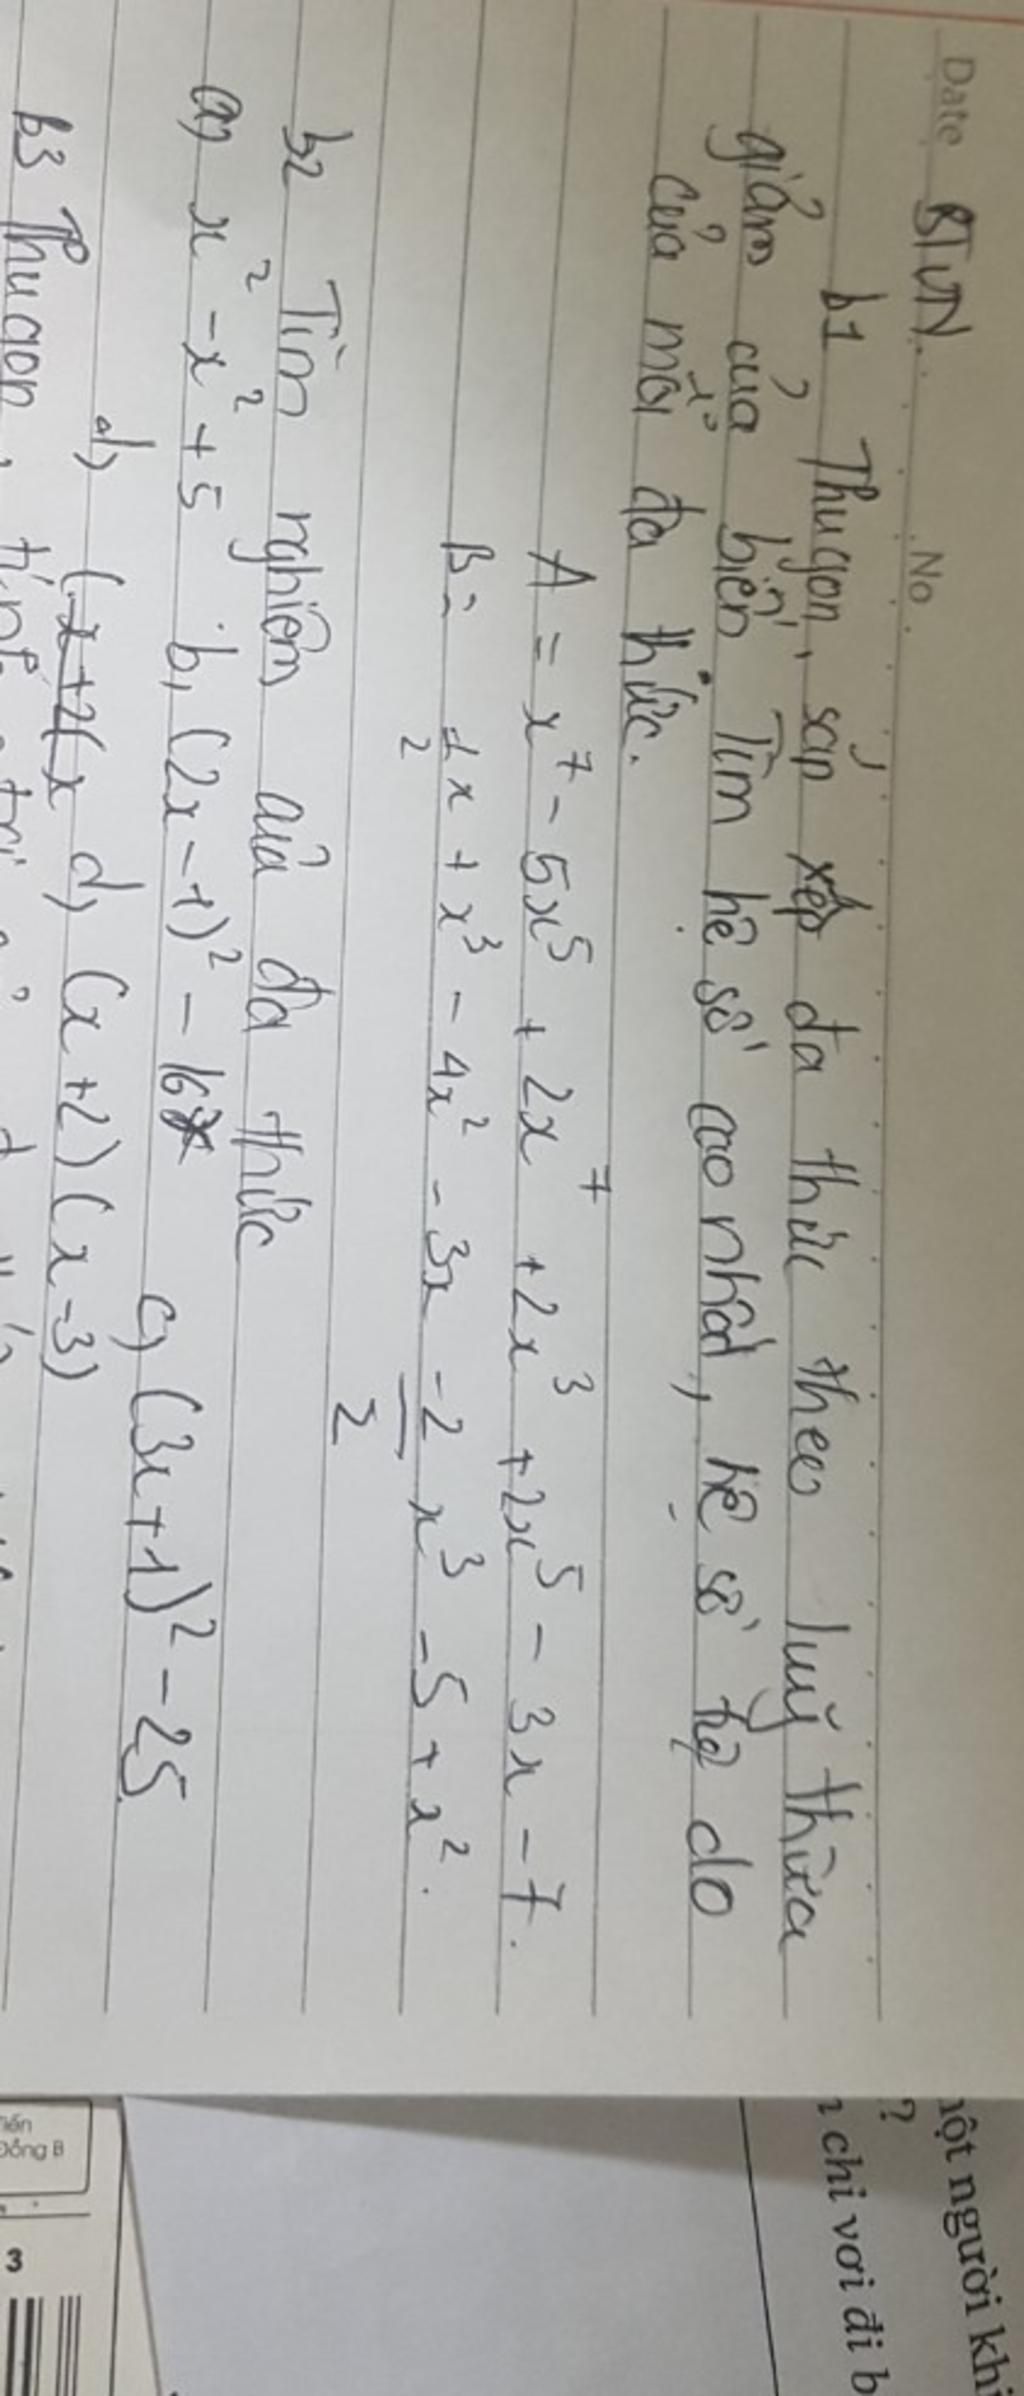 Date BTVN. No.
b1 Thu gọn, sắp xếp đa thức theo luỹ thừa
giảm của biến. Tìm hệ số cao nhất, hệ số tự do
của mỗi đa thức.
A = x⁷ - 5x⁵ + 2x⁷ + 2x³ + 2x⁵ - 3x - 7.
B = 1/2 x + x³ - 4x² - 3x - 2/2 x³ - 5 + x².
b2 Tìm nghiệm của đa thức
a) x² - x² + 5 b, (2x - 1)² - 16 c) (3x + 1)² - 25
d) d) (x + 2) (x - 3)
b3 Thu gọn
một người khi
?
chi vơi đi b
Đồng B
3